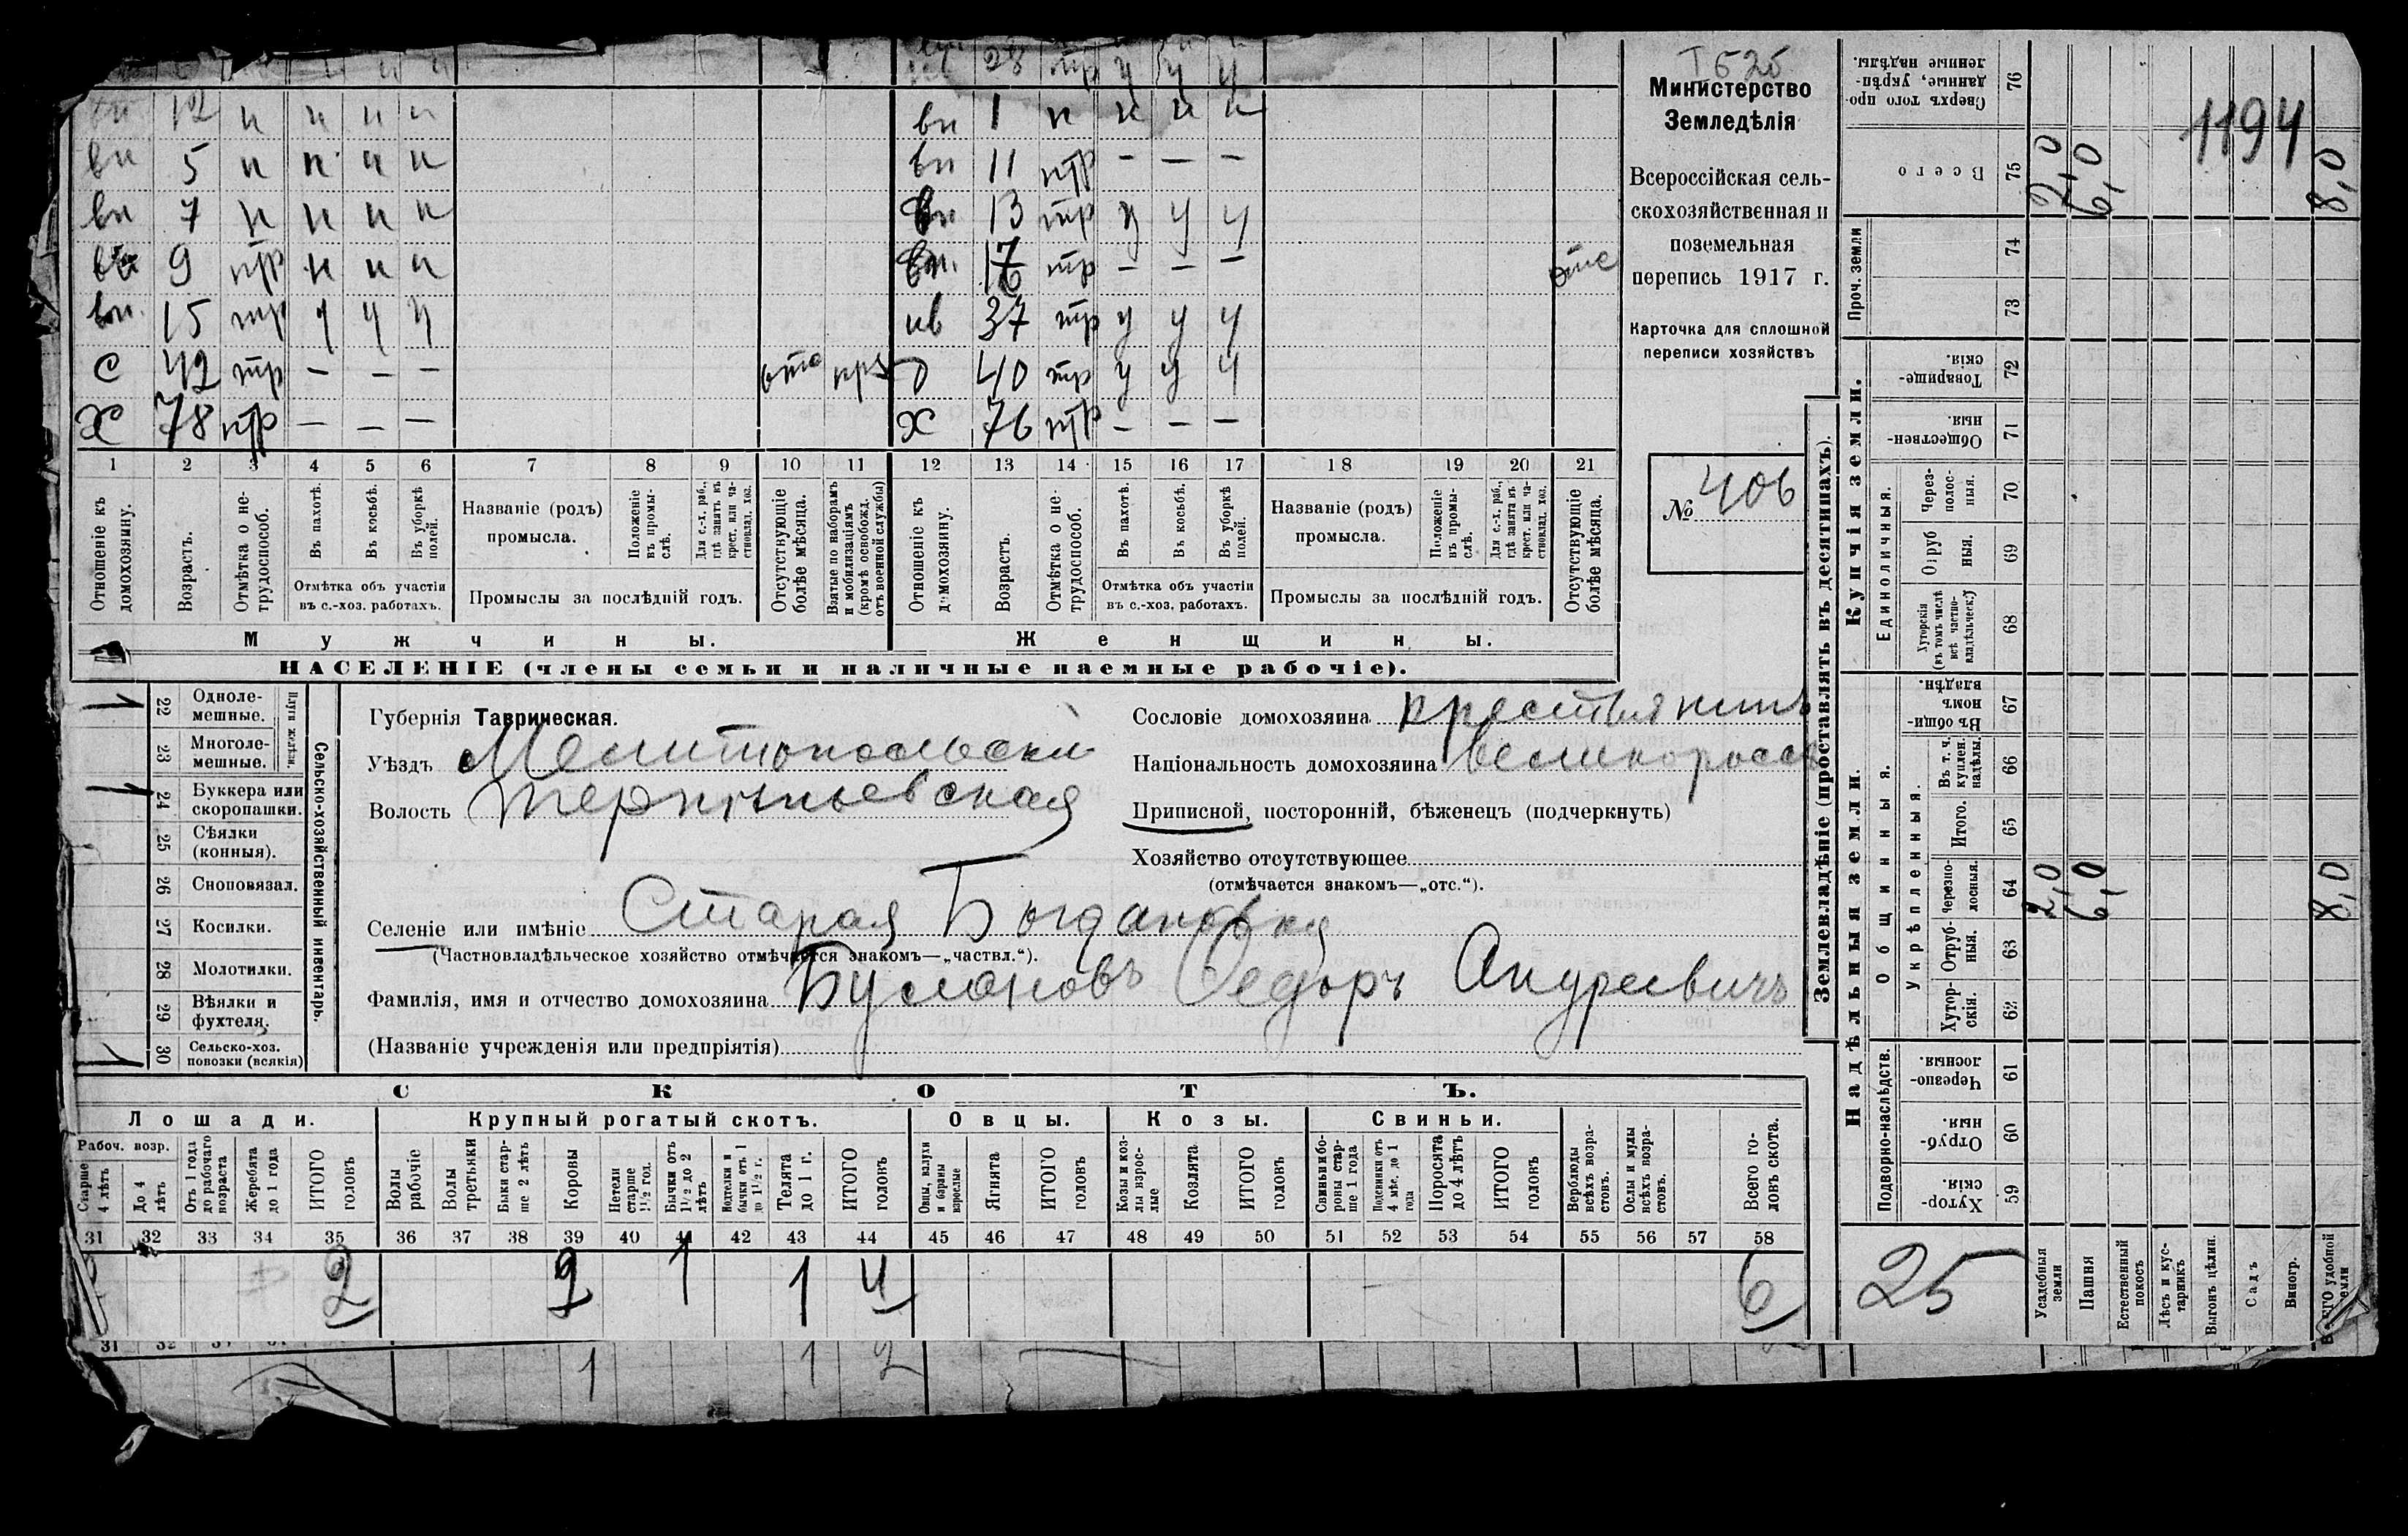 I 525
28 тр у у у
12 н н н н
вн 1 н н н н
вн 5 н н н н
вн 11 нтр — — —
вн 7 н н н н
вн 13 тр у у у
9 нтр н н н
тр — — — отс
вн. 15 тр у у у
нв 37 тр у у у
с 42 тр — — — отс
40 тр у у у
х 78 нтр — — —
х 76 нтр — — —
1 2 3 4 5 6 7 8 9 10 11 12 13 14 15 16 17 18 19 20 21
Отношеніе къ домохозяину.
Возрастъ.
Отмѣтка о нетрудоспособ.
Въ пахотѣ.
Въ косьбѣ.
Въ уборкѣ полей.
Отмѣтка объ участіи въ с.-хоз. работахъ.
Названіе (родъ) промысла.
Положеніе въ промыслѣ.
Для с.-х. раб., гдѣ занятъ въ крест. или частновлад. хоз.
Промыслы за послѣдній годъ.
Отсутствующіе болѣе мѣсяца.
Взятые по наборамъ и мобилизаціямъ (кромѣ освобожд. отъ военной службы)
Отношеніе къ домохозяину.
Возрастъ.
Отмѣтка о нетрудоспособ.
Въ пахотѣ.
Въ косьбѣ.
Въ уборкѣ полей.
Отмѣтка объ участіи въ с.-хоз. работахъ.
Названіе (родъ) промысла.
Положеніе въ промыслѣ.
Для с.-х. раб., гдѣ занята въ крест. или частновлад. хоз.
Промыслы за послѣдній годъ.
Отсутствующіе болѣе мѣсяца.
Мужчины.
Женщины.
НАСЕЛЕНІЕ (члены семьи и наличные наемные рабочіе).
Министерство
Земледѣлія
Всероссійская сель-
скохозяйственная и
поземельная
перепись 1917 г.
Карточка для сплошной
переписи хозяйствъ
№ 406
22 Одноле-
мешные.
23 Многоле-
мешные.
Плуги желѣзн.
24 Буккера или
скоропашки.
25 Сѣялки
(конныя).
26 Сноповязал.
27 Косилки.
28 Молотилки.
29 Вѣялки и
фухтеля.
30 Сельско-хоз.
повозки (всякія)
Сельско-хозяйственный инвентарь.
Губернія Таврическая.
Уѣздъ Мелитопольскій
Волость Терпѣньевская
Сословіе домохозяина крестьянинъ
Національность домохозяина великороссъ
Приписной, посторонній, бѣженецъ (подчеркнуть)
Хозяйство отсутствующее
(отмѣчается знакомъ—„отс.“).
Селеніе или имѣніе Старая Богдановка
(Частновладѣльческое хозяйство отмѣчается знакомъ—„частвл.“).
Фамилія, имя и отчество домохозяина Ѳедоръ Андреевичъ
(Названіе учрежденія или предпріятія)
СКОТЪ.
Лошади. Крупный рогатый скотъ. Овцы. Козы. Свиньи.
Рабоч. возр.
Старше 4 лѣтъ
До 4 лѣтъ
Отъ 1 года до рабочаго возраста
Жеребята до 1 года
ИТОГО головъ
Волы рабочіе
Волы третьяки
Быки старше 2 лѣтъ
Коровы
Нетели старше 1½ год.
Бычки отъ 1½ до 2 лѣтъ
Нодтелки и бычки отъ 1 до 1½ г.
Телята до 1 г.
ИТОГО головъ
Овцы, валухи и бараны взрослые
Ягнята
ИТОГО головъ
Козы и козлы взрослые
Козлята
ИТОГО головъ
Свиньи и боровы старше 1 года
Подсвинки отъ 4 мѣс. до 1 года
Поросята до 4 лѣтъ
ИТОГО головъ
Верблюды всѣхъ возрастовъ.
Ослы и мулы всѣхъ возрастовъ.
Всего головъ скота.
31 32 33 34 35 36 37 38 39 40 41 42 43 44 45 46 47 48 49 50 51 52 53 54 55 56 57 58
2 2 1 1 4 6
31 32
1 1 2
Землевладѣніе (проставлять въ десятинахъ).
Купчія земли.
Надѣльныя земли.
Сверхъ того проданные, укрѣпленные надѣлы. 76
Всего 75 2,0 6,0 8,0
1194
Проч. земли 74 73
Товарищескія. 72
Общественныя 71
Единоличныя.
Черезполосныя. 70
Отрубныя. 69
Хуторскія (въ томъ числѣ всѣ частновладѣльческ.) 68
Общинныя.
Въ общинномъ владѣн. 67
Укрѣпленныя.
Въ т. ч. куплен. надѣлы. 66
Итого. 65
Черезполосныя. 64 2,0 6,0 8,0
Отрубныя. 63
Хуторскія. 62
Подворно-наслѣдств.
Черезполосныя. 61
Отрубныя. 60
Хуторскія. 59
25
Усадебныя земли
Пашня
Естественный покосъ
Лѣсъ и кустарникъ
Выгонъ цѣлин.
Садъ
Виногр.
удобной земли